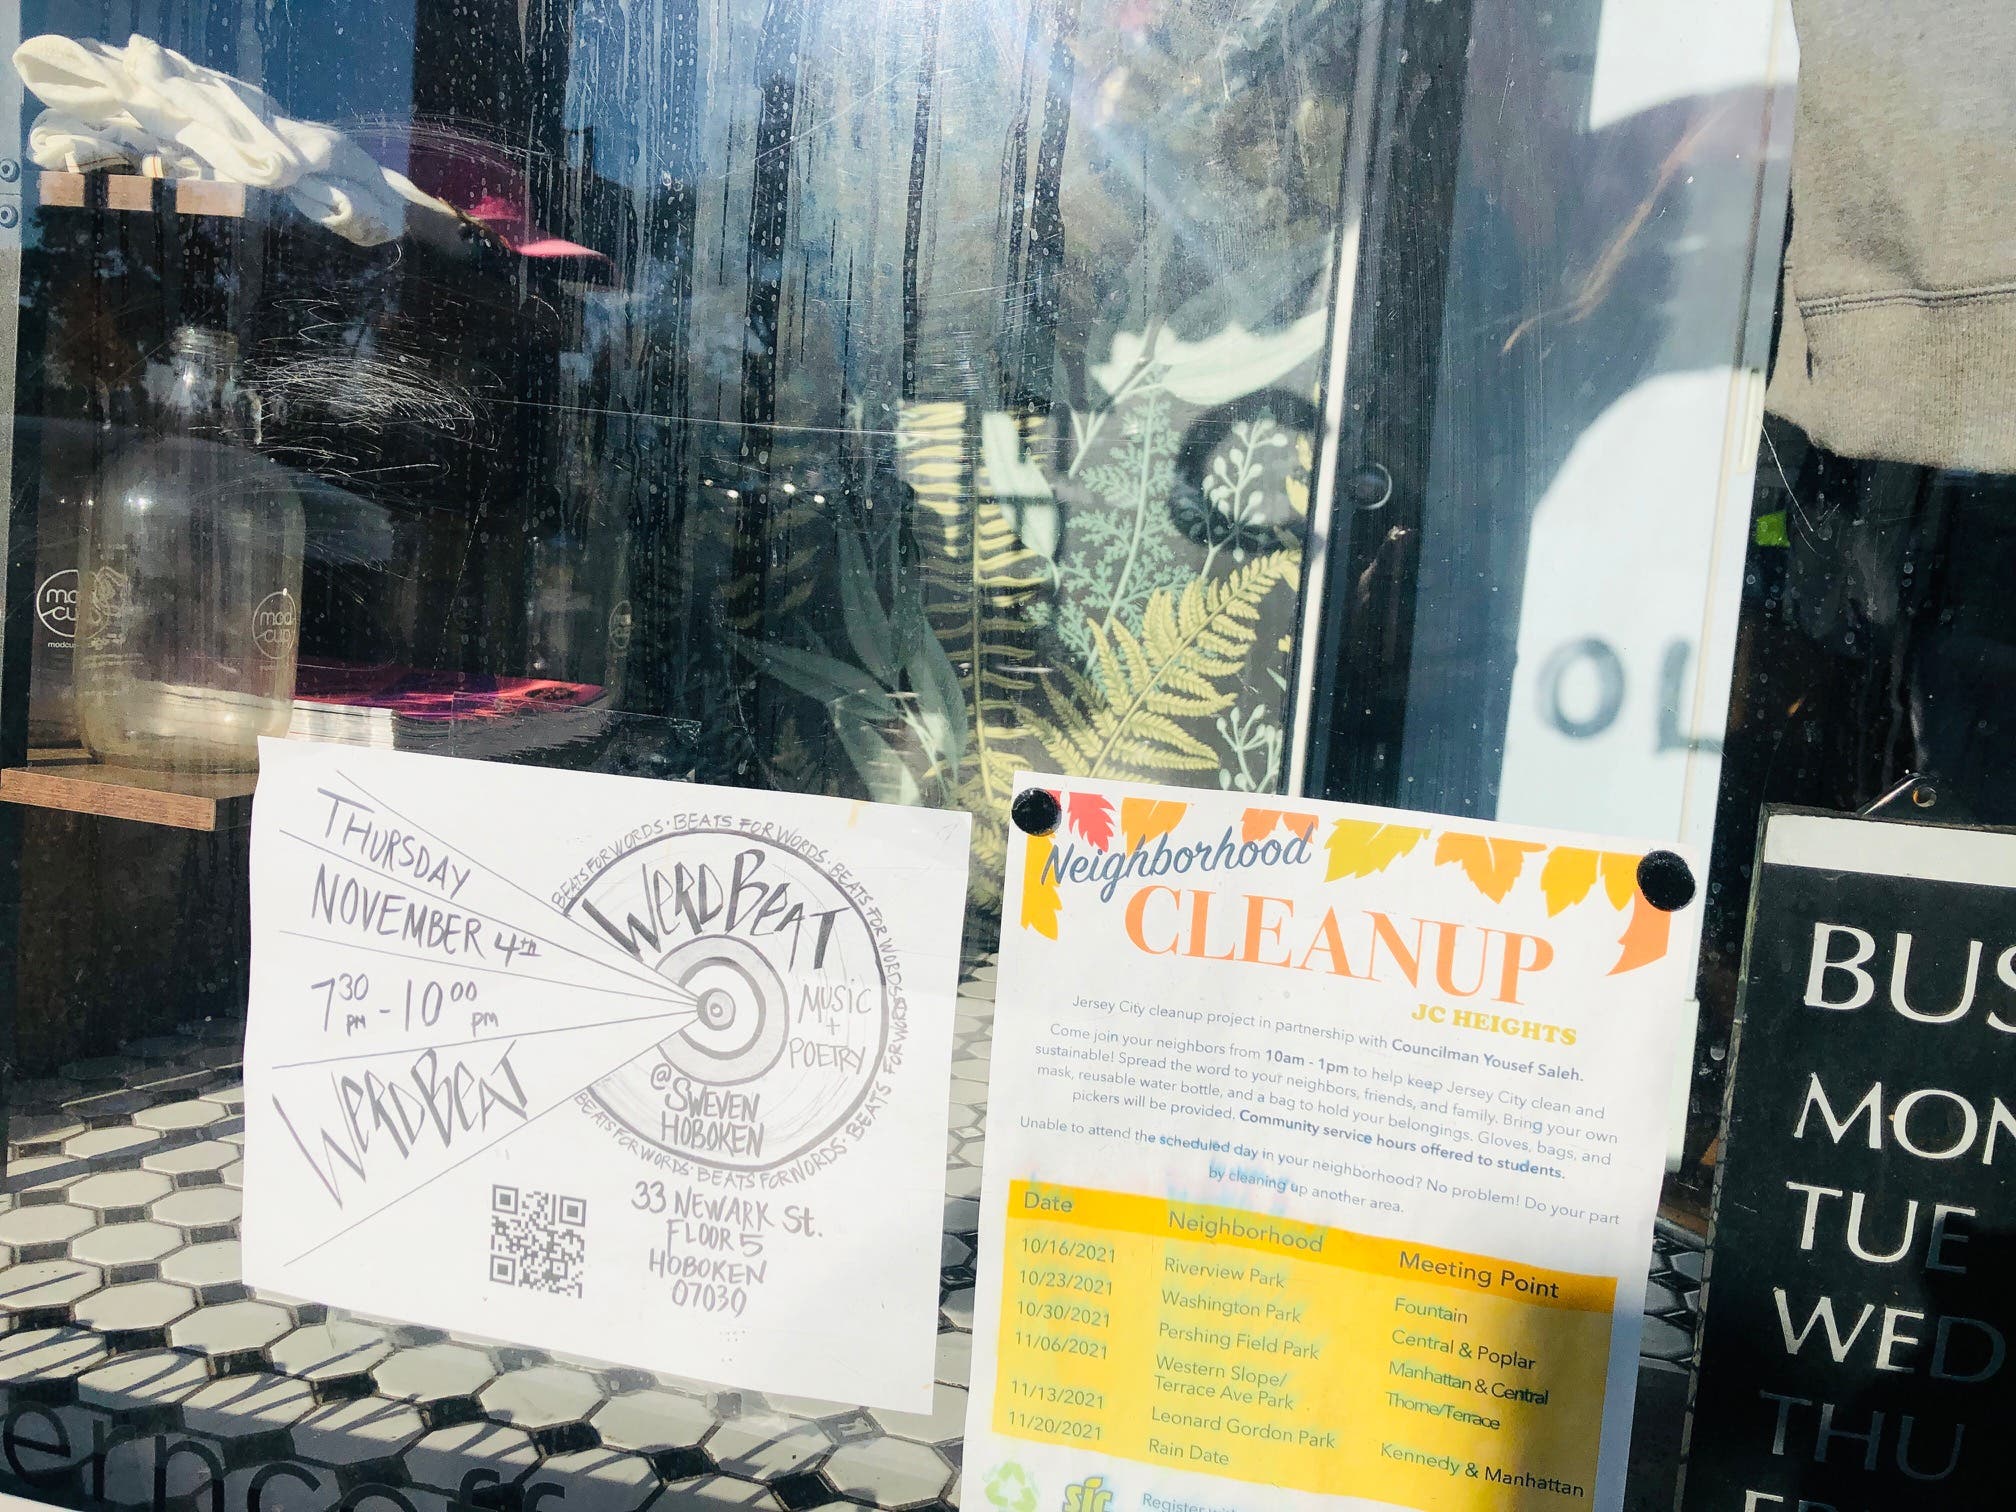 mod
cup
THURSDAY
NOVEMBER 4th
7 30 pm - 10 00 pm
WERDBEAT
BEATS FOR WORDS · BEATS FOR WORDS · BEATS FOR WORDS
WERDBEAT
MUSIC
+
POETRY
@
SWEVEN
HOBOKEN
BEATS FOR WORDS · BEATS FOR WORDS · BEATS FOR WORDS
33 NEWARK St.
FLOOR 5
HOBOKEN
07030
Neighborhood
CLEANUP
JC HEIGHTS
Jersey City cleanup project in partnership with Councilman Yousef Saleh.
Come join your neighbors from 10am - 1pm to help keep Jersey City clean and
sustainable! Spread the word to your neighbors, friends, and family. Bring your own
mask, reusable water bottle, and a bag to hold your belongings. Gloves, bags, and
pickers will be provided. Community service hours offered to students.
Unable to attend the scheduled day in your neighborhood? No problem! Do your part
by cleaning up another area.
Date Neighborhood Meeting Point
10/16/2021 Riverview Park Fountain
10/23/2021 Washington Park Central & Poplar
10/30/2021 Pershing Field Park Manhattan & Central
11/06/2021 Western Slope/ Thorne/Terrace
Terrace Ave Park
11/13/2021 Leonard Gordon Park Kennedy & Manhattan
11/20/2021 Rain Date
sjc
Register
OL
BUS
MON
TUE
WED
THU
erncoff